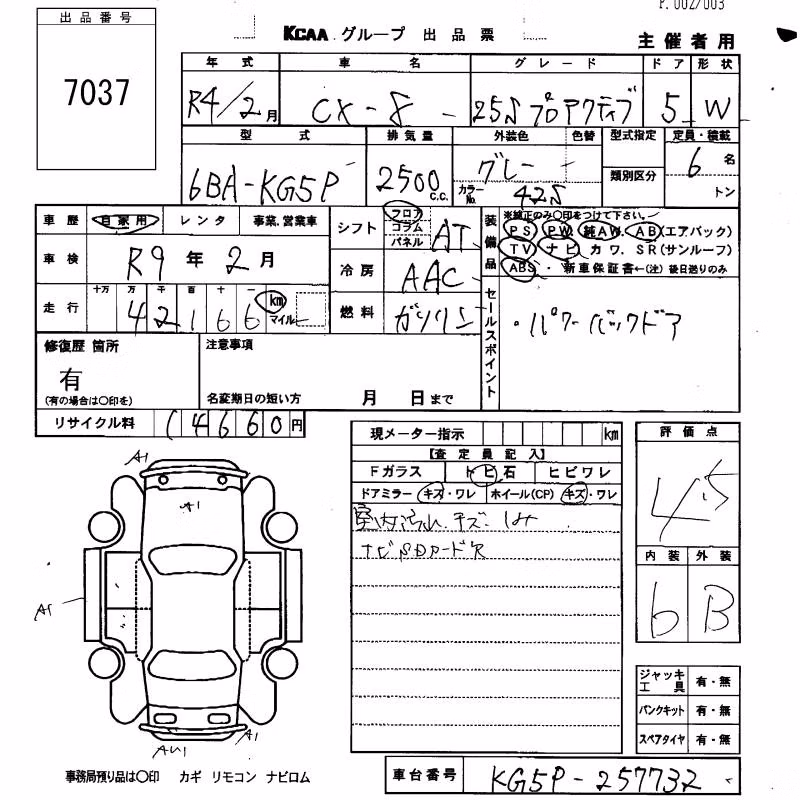 P. 002/003
出品番号
7037
KCAA グループ 出品票
主催者用
年式 車名 グレード ドア 形状
R4/2月 CX-8 25S プロアクティブ 5 W
型式 排気量 外装色 色替 型式指定 定員・積載
6BA-KG5P 2500 C.C. グレー カラーNo. 42S 類別区分 6名 トン
車歴 自家用 レンタ 事業、営業車
シフト フロア コラム パネル AT
装備品 ※純正のみ○印をつけて下さい。
PS PW 純AW AB(エアバック)
TV ナビ カワ SR(サンルーフ)
ABS ・ 新車保証書←(注) 後日送りのみ
車検 R9年2月
冷房 AAC
走行 十万 万 千 百 十 一
42166 km マイル
燃料 ガソリン
セールスポイント
・パワーバックドア
修復歴 箇所
有
(有の場合は○印を)
注意事項
名変期日の短い方 月 日まで
リサイクル料 14660円
現メーター指示 km
【査定員記入】
Fガラス トビ石 ヒビワレ
ドアミラー キズ・ワレ ホイール(CP) キズ・ワレ
室内汚れ、キズ、
ナビSDカード欠
評価点
4.5
内装 外装
6 B
A1
A1
A1
AU1
ジャッキ工具 有・無
パンクキット 有・無
スペアタイヤ 有・無
事務局預り品は○印 カギ リモコン ナビロム
車台番号 KG5P-257732